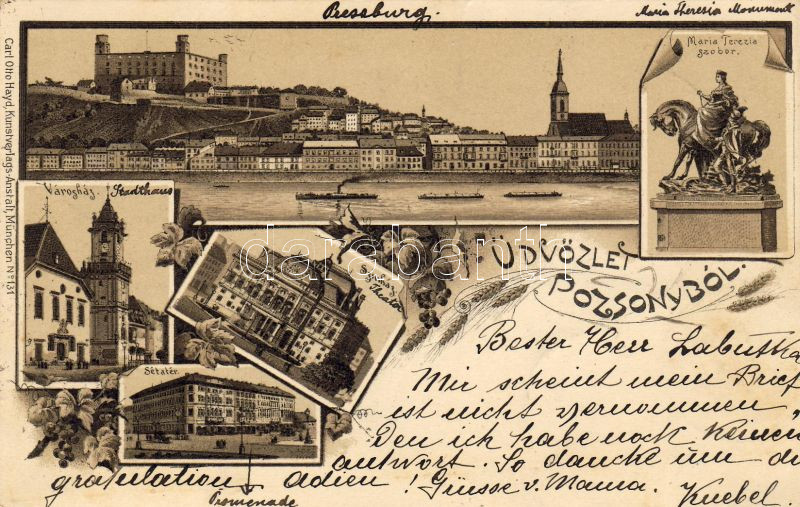 Pressburg.
Maria Theresia Monument
Maria Terezia
szobor.
Carl Otto Hayd, Kunstverlags-Anstalt, München No 131
Városház. Stadthaus
Szinház
Theater
Sétatér.
darabanth
ÜDVÖZLET
POZSONYBÓL.
Bester Herr Labuttka
Mir scheint mein Brief
ist nicht vernommen,
Den ich habe noch keinen
antwort. So dancke um die
gratulation adieu! Güsse v. Mama. Knebel.
Promenade